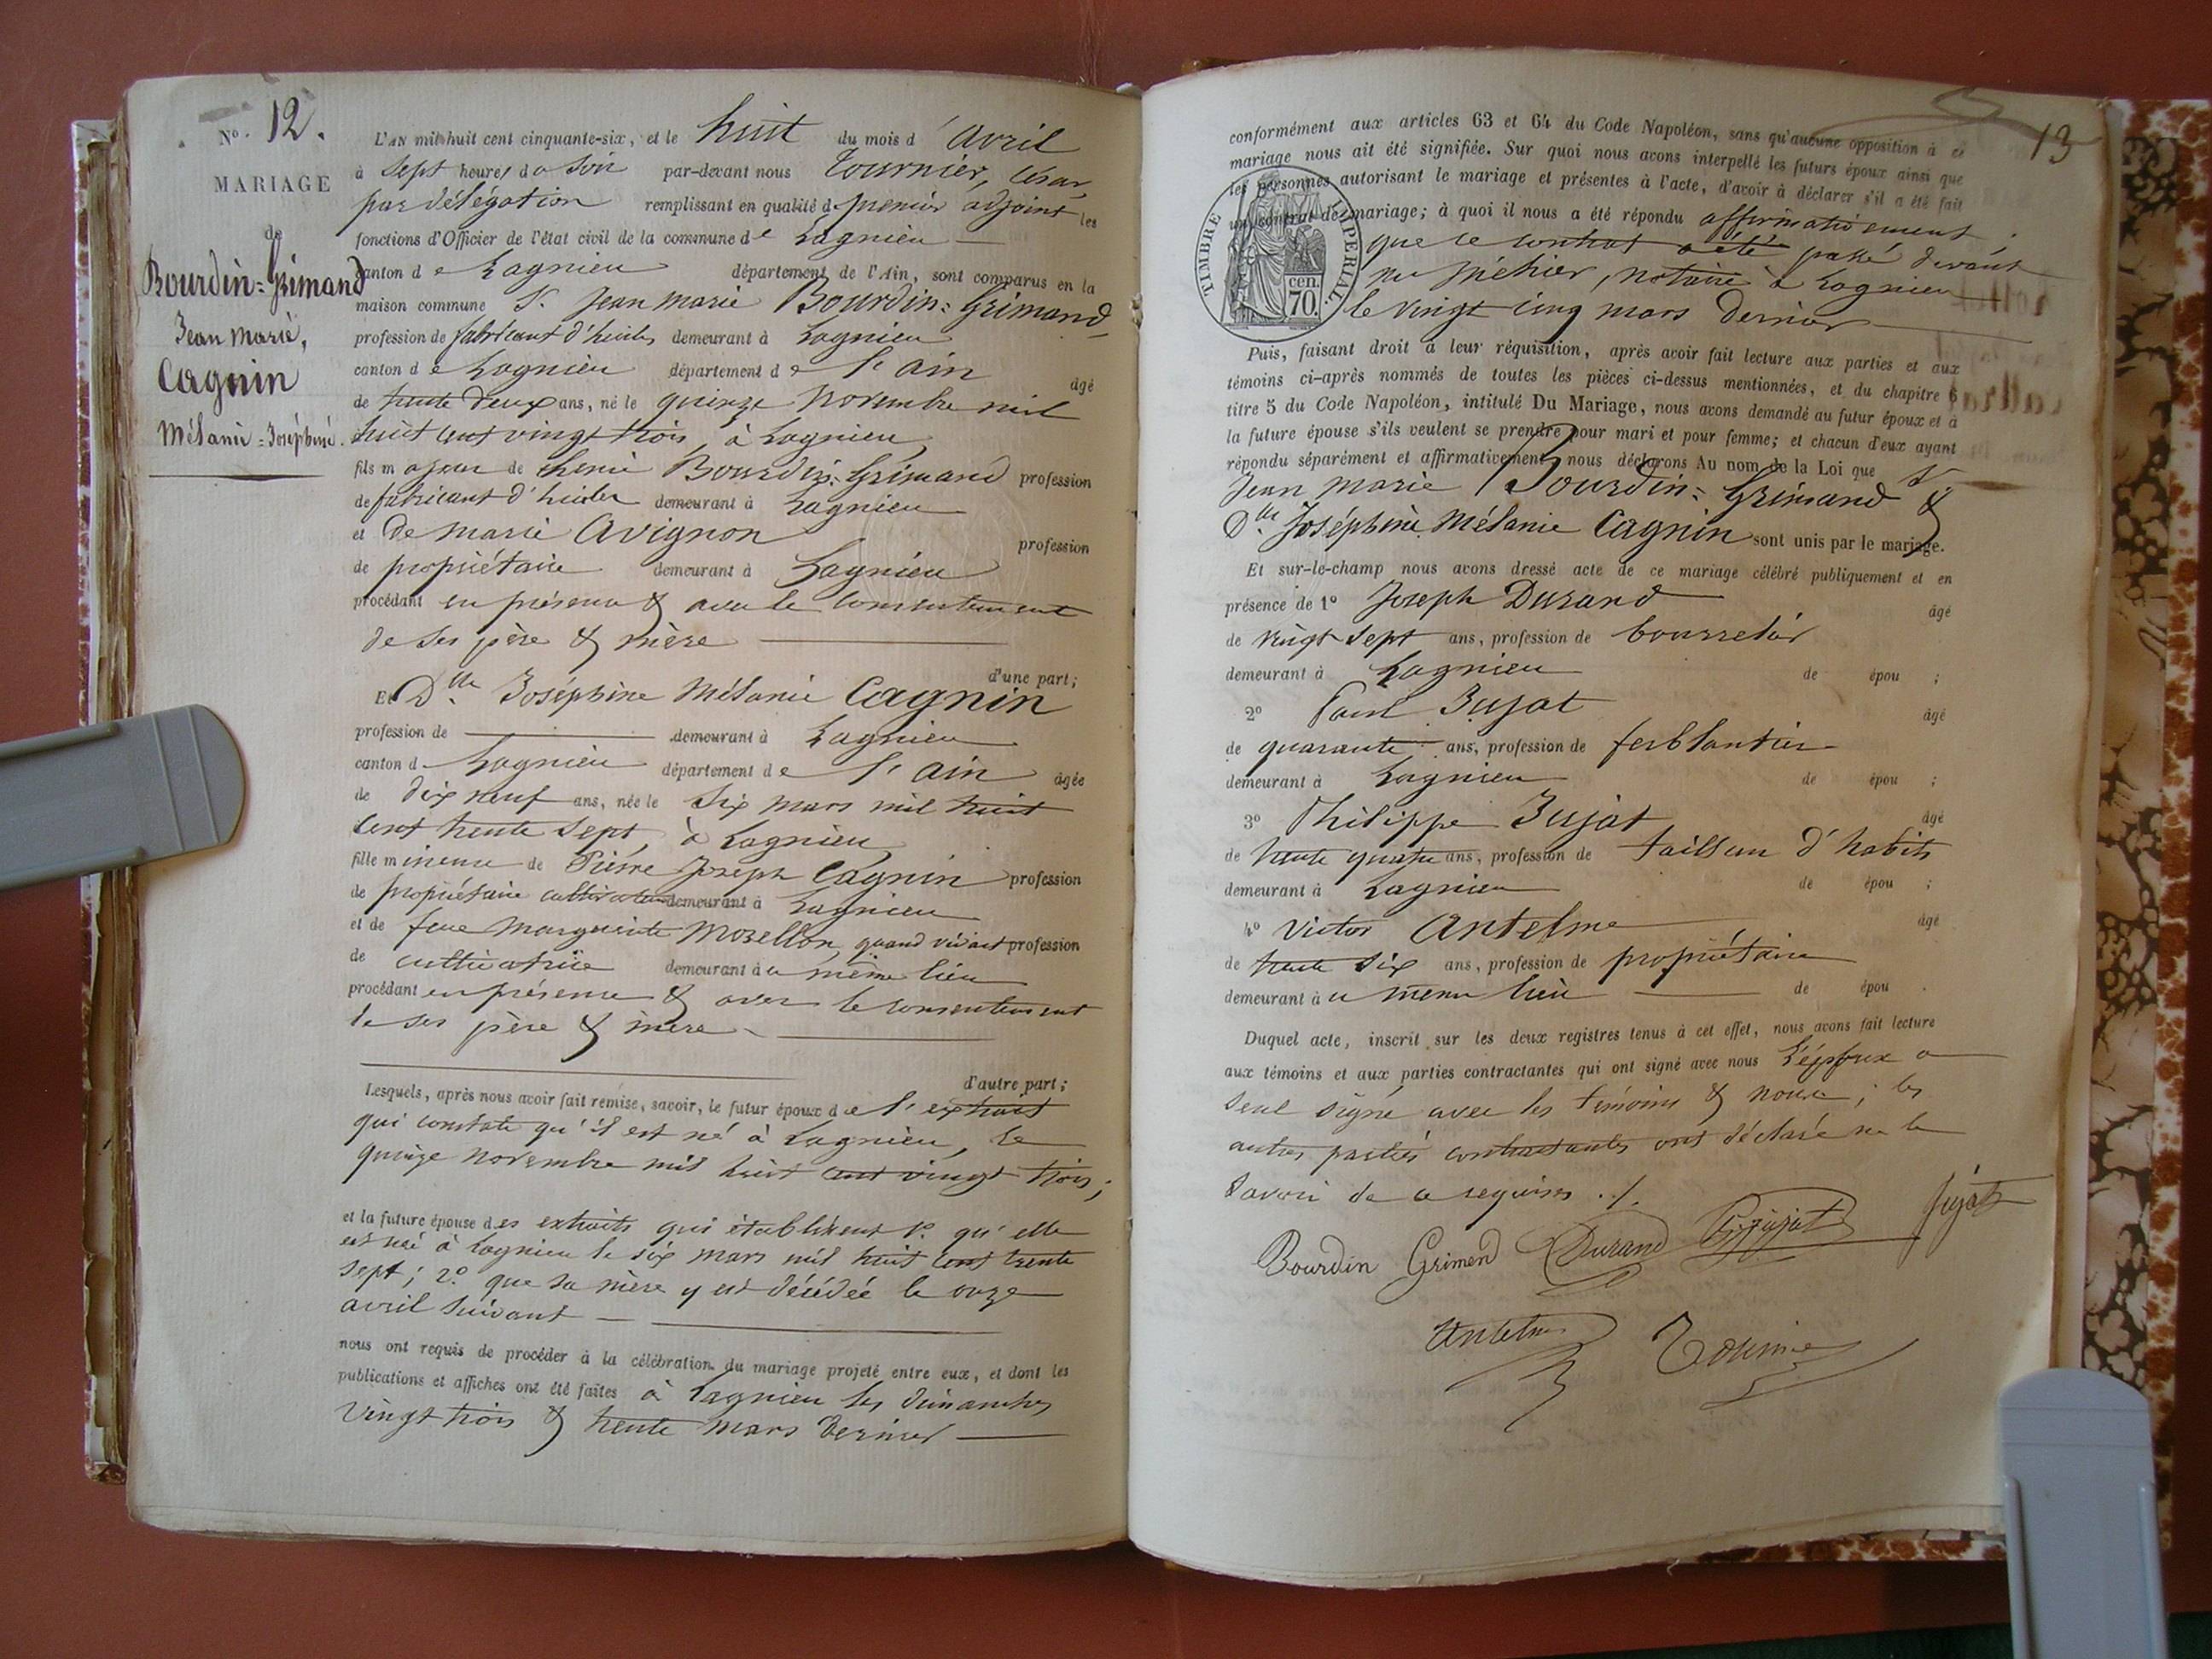 No. 12.
MARIAGE
de
Bourdin=Grimand
Jean Marie,
Cagnin
Mélanie=Joséphine.
L'AN mil huit cent cinquante-six, et le huit du mois d'Avril
à Sept heures du Soir par-devant nous Tournier, César,
par délégation remplissant en qualité de premier adjoint les
fonctions d'Officier de l'état civil de la commune de Lagnieu
canton de Lagnieu département de l'Ain, sont comparus en la
maison commune S. Jean Marie Bourdin=Grimand
profession de fabricant d'huiles demeurant à Lagnieu
canton de Lagnieu département de l'Ain âgé
de trente deux ans, né le quinze Novembre mil
huit cent vingt trois, à Lagnieu
fils majeur de Bourdin=Grimand profession
de fabricant d'huiles demeurant à Lagnieu
et de Marie Avignon profession
de propriétaire demeurant à Lagnieu
procédant en présence & avec le consentement
de ses père & mère
d'une part;
Et Dlle Joséphine Mélanie Cagnin
profession de demeurant à Lagnieu
canton de Lagnieu département de l'Ain âgée
de dix neuf ans, née le Six mars mil huit
cent trente sept, à Lagnieu
fille mineure de Pierre Joseph Cagnin profession
de propriétaire cultivateur demeurant à Lagnieu
et de feue Marguerite Morellon, quand vivait profession
de cultivatrice demeurant au même lieu
procédant en présence & avec le consentement
de ses père & mère
d'autre part;
Lesquels, après nous avoir fait remise, savoir, le futur époux de l'extrait
qui constate qu'il est né à Lagnieu, le
quinze Novembre mil huit cent vingt trois;
et la future épouse des extraits qui établissent 1.º qu'elle
est née à Lagnieu le six mars mil huit cent trente
sept; 2.º que sa mère y est décédée le onze
avril suivant
nous ont requis de procéder à la célébration du mariage projeté entre eux, et dont les
publications et affiches ont été faites à Lagnieu les dimanches
vingt trois & trente mars dernier
13
conformément aux articles 63 et 64 du Code Napoléon, sans qu'aucune opposition à ce
mariage nous ait été signifiée. Sur quoi nous avons interpellé les futurs époux ainsi que
les personnes autorisant le mariage et présentes à l'acte, d'avoir à déclarer s'il a été fait
un contrat de mariage; à quoi il nous a été répondu affirmativement,
que ce contrat a été passé devant
notaire à Lagnieu
le vingt cinq mars dernier
TIMBRE IMPÉRIAL.
70. cen.
Puis, faisant droit à leur réquisition, après avoir fait lecture aux parties et aux
témoins ci-après nommés de toutes les pièces ci-dessus mentionnées, et du chapitre 6
titre 5 du Code Napoléon, intitulé Du Mariage, nous avons demandé au futur époux et à
la future épouse s'ils veulent se prendre pour mari et pour femme; et chacun d'eux ayant
répondu séparément et affirmativement, nous déclarons Au nom de la Loi que S.
Jean Marie Bourdin=Grimand &
Dlle Joséphine Mélanie Cagnin sont unis par le mariage.
Et sur-le-champ nous avons dressé acte de ce mariage célébré publiquement et en
présence de 1º Joseph Durand âgé
de vingt sept ans, profession de bourrelier
demeurant à Lagnieu de épou ;
2º Paul Jujat âgé
de quarante ans, profession de ferblantier
demeurant à Lagnieu de épou ;
3º Philippe Jujat âgé
de trente quatre ans, profession de tailleur d'habits
demeurant à Lagnieu de épou ;
4º Victor Antelme âgé
de trente six ans, profession de propriétaire
demeurant au même lieu de épou .
Duquel acte, inscrit sur les deux registres tenus à cet effet, nous avons fait lecture
aux témoins et aux parties contractantes qui ont signé avec nous L'époux a
seul signé avec les témoins & nous; les
autres parties contractantes ont déclaré ne le
savoir de ce requises ./.
Bourdin Grimand Durand Jujat Jujat
Antelme Tournier